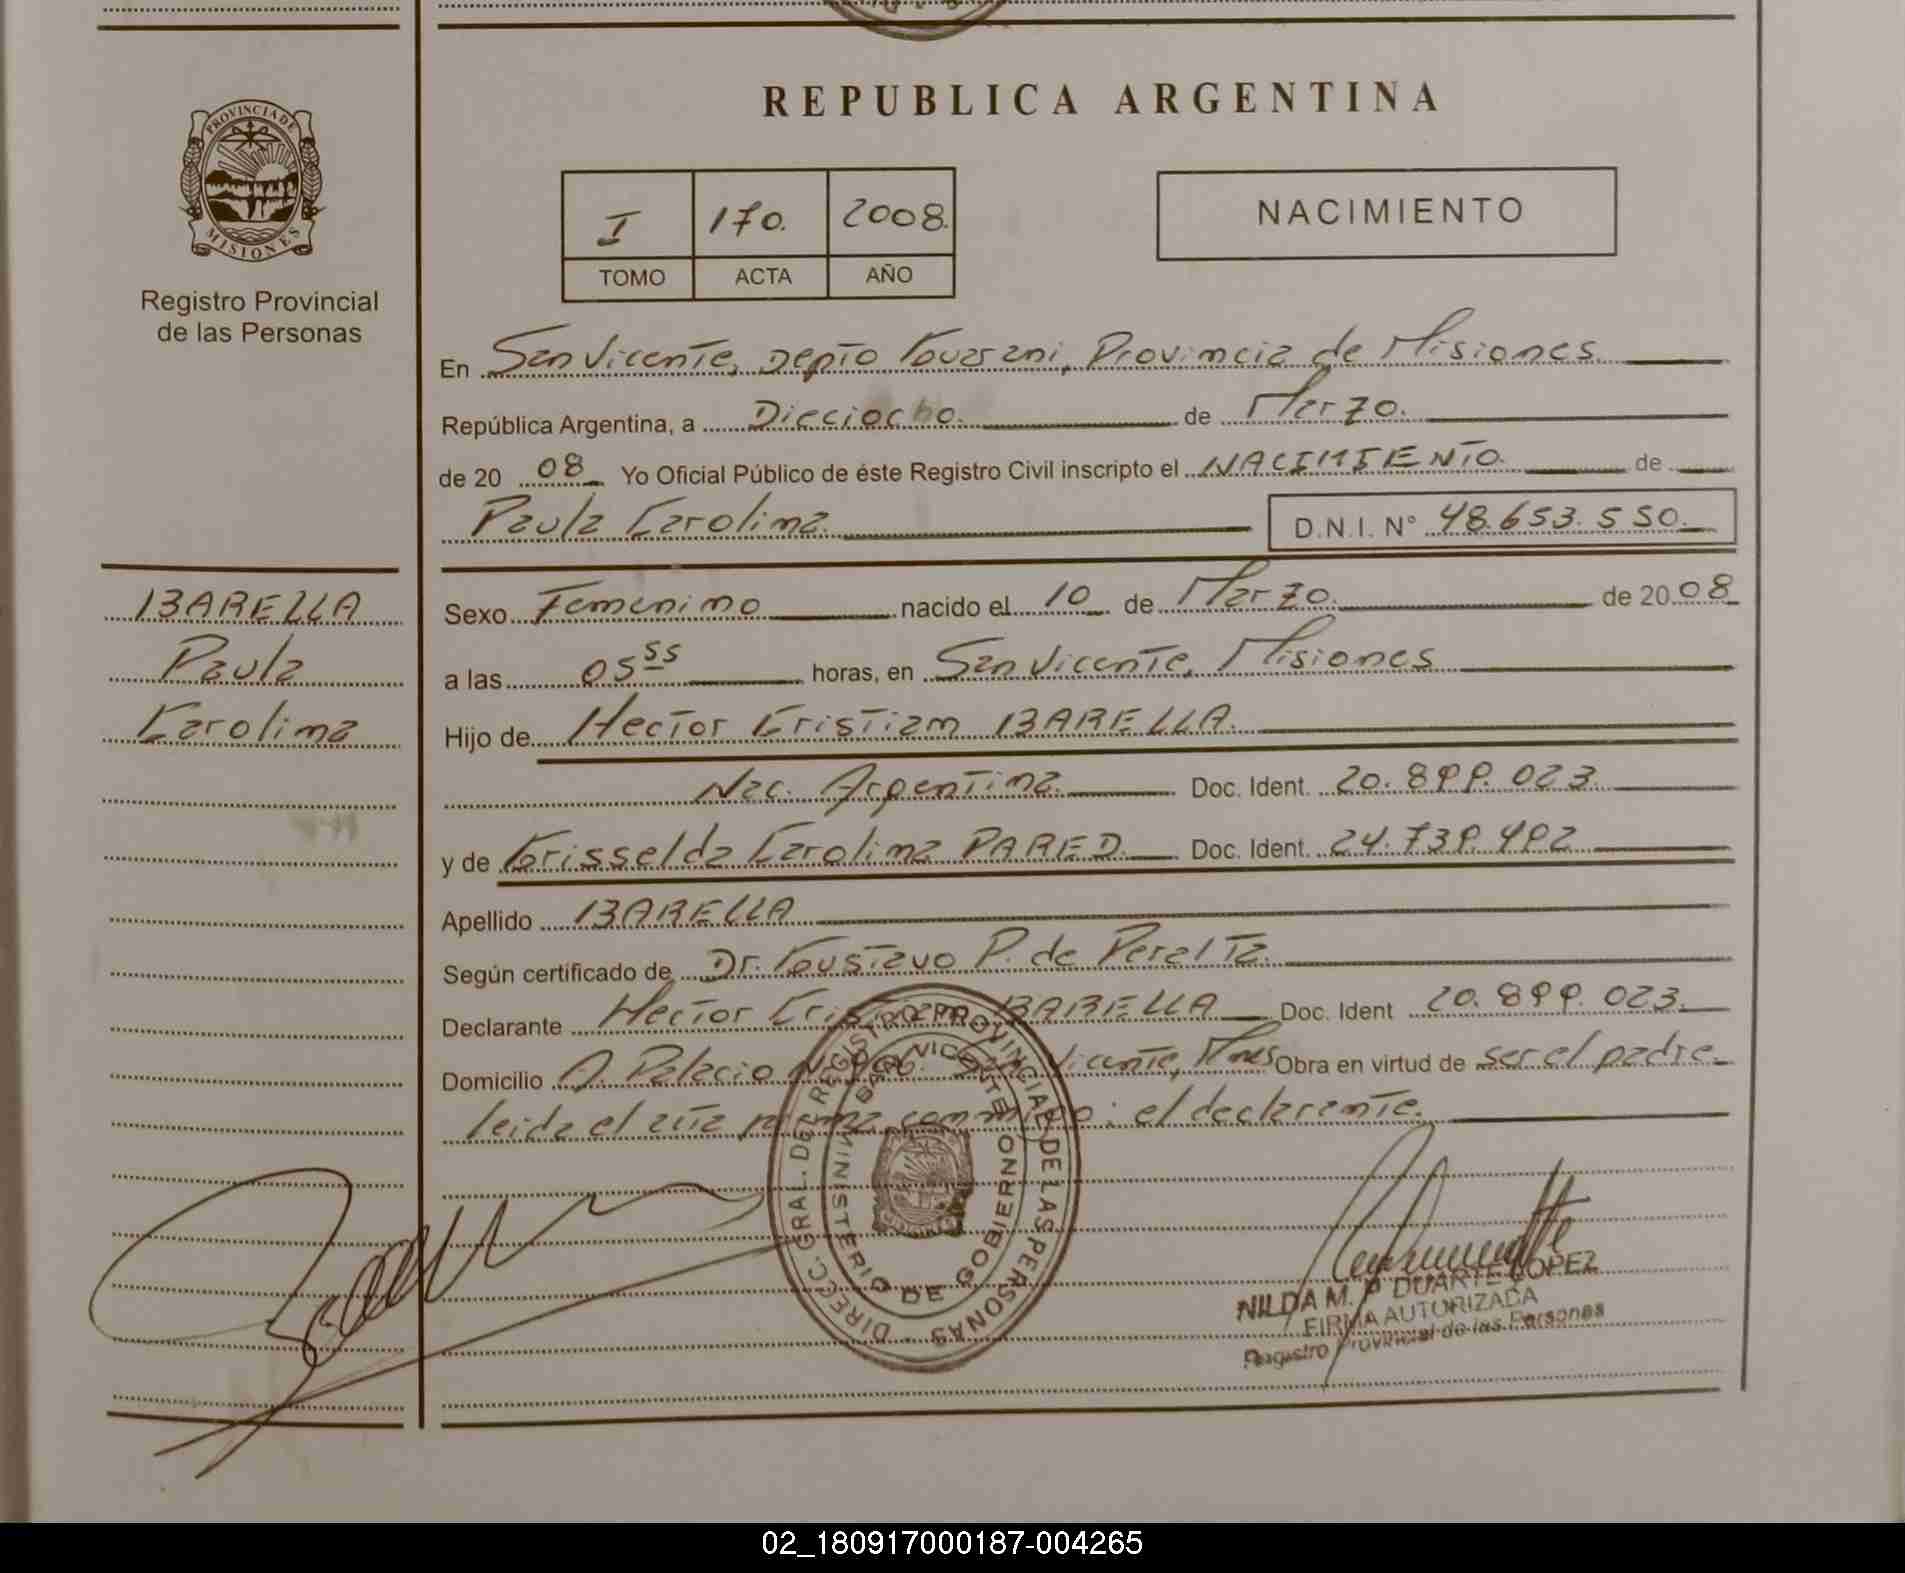 REPUBLICA ARGENTINA
PROVINCIA DE
MISIONES
Registro Provincial
de las Personas
I 170. 2008.
TOMO ACTA AÑO
NACIMIENTO
En San Vicente, Depto Guarani, Provincia de Misiones
República Argentina, a Dieciocho. de Marzo.
de 20 08 Yo Oficial Público de éste Registro Civil inscripto el NACIMIENTO. de
Paula Carolina. D.N.I. N° 48.653.550.
BARELLA
Paula
Carolina
Sexo Femenino nacido el 10 de Marzo. de 20 08
a las 05 55 horas, en San Vicente, Misiones
Hijo de Hector Cristian BARELLA.
Nac. Argentina. Doc. Ident. 20.899.023.
y de Grisselda Carolina PARED. Doc. Ident. 24.739.492
Apellido BARELLA
Según certificado de Dr. Gustavo P. de Peralta.
Declarante Hector Cristian BARELLA Doc. Ident 20.899.023.
Domicilio A. Palacio San Vicente, Mnes Obra en virtud de ser el padre.
Leida el acta firma conmigo: el declarante.
DIRECC. GRAL. DEL REGISTRO PROVINCIAL DE LAS PERSONAS
SAN VICENTE
MINISTERIO DE GOBIERNO
NILDA M. P DUARTE LOPEZ
FIRMA AUTORIZADA
Registro Provincial de las Personas
02_180917000187-004265